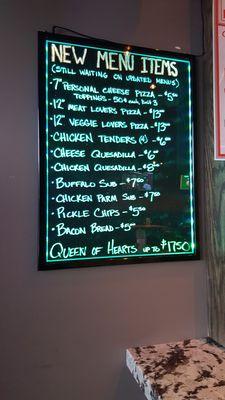 NEW MENU ITEMS
(STILL WAITING ON UPDATED MENUS)
• 7" PERSONAL CHEESE PIZZA - $5
TOPPINGS - 50¢ each,
• 12" MEAT LOVERS PIZZA - $13
• 12" VEGGIE LOVERS PIZZA - $13
• CHICKEN TENDERS (4) - $6
• CHEESE QUESADILLA - $6
• CHICKEN QUESADILLA - $8
• BUFFALO SUB - $7
• CHICKEN PARM SUB - $7
• PICKLE CHIPS - $5
• BACON BREAD - $5
QUEEN OF HEARTS UP TO $1750